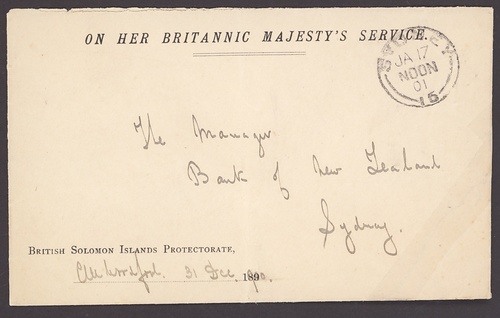 ON HER BRITANNIC MAJESTY'S SERVICE.
SYDNEY
JA 17
NOON
01
15
The Manager
Bank of New Zealand
Sydney.
BRITISH SOLOMON ISLANDS PROTECTORATE,
C M Woodford. 31 Dec. 1890 900.